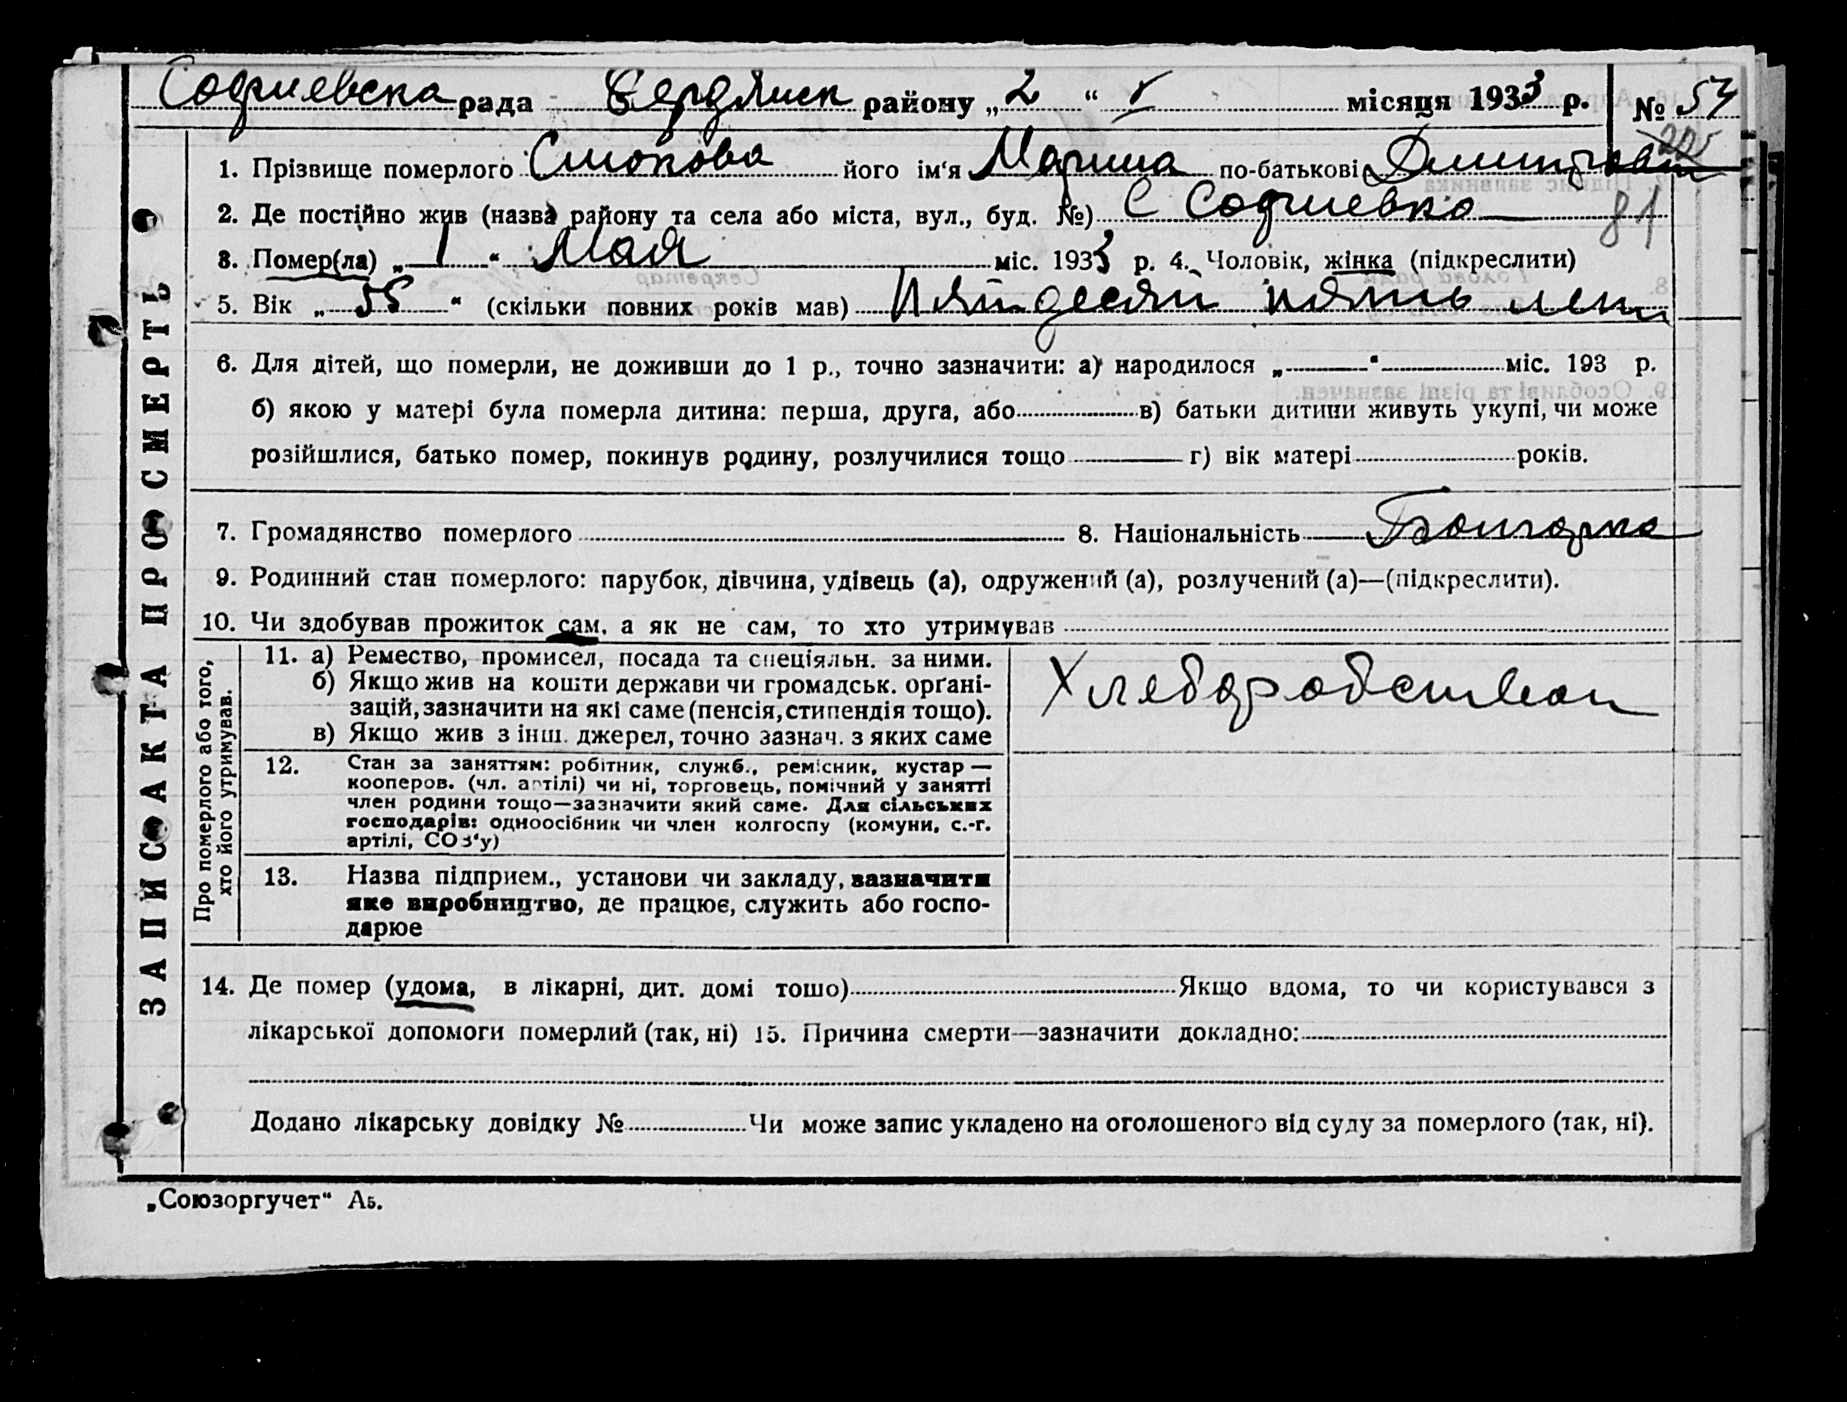 Софиевска рада Бердянск району „2“ V місяця 1933 р. № 54
1. Прізвище померлого Стокова його ім'я Марина по-батькові Дмитровн
2. Де постійно жив (назва району та села або міста, вул., буд. №) С Софиевка 81
3. Помер(ла) „1“ Мая міс. 1933 р. 4. Чоловік, жінка (підкреслити)
5. Вік „55“ (скільки повних років мав) Пятдесят пять лет
6. Для дітей, що померли, не доживши до 1 р., точно зазначити: а) народилося „ “ міс. 193 р.
б) якою у матері була померла дитина: перша, друга, або в) батьки дитини живуть укупі, чи може
розійшлися, батько помер, покинув родину, розлучилися тощо г) вік матері років.
7. Громадянство померлого 8. Національність Болгарка
9. Родинний стан померлого: парубок, дівчина, удівець (а), одружений (а), розлучений (а)—(підкреслити).
10. Чи здобував прожиток сам, а як не сам, то хто утримував
ЗАПИС АКТА ПРО СМЕРТЬ
Про померлого або того,
хто його утримував.
11. а) Ремество, промисел, посада та спеціяльн. за ними.
б) Якщо жив на кошти держави чи громадськ. орґані-
зацій, зазначити на які саме (пенсія, стипендія тощо).
в) Якщо жив з інш. джерел, точно зазнач. з яких саме
Хлебаробством
12. Стан за заняттям: робітник, служб., ремісник, кустар —
кооперов. (чл. артілі) чи ні, торговець, помічний у занятті
член родини тощо—зазначити який саме. Для сільських
господарів: одноосібник чи член колгоспу (комуни, с.-г.
артілі, СОЗ'у)
13. Назва підприєм., установи чи закладу, зазначити
яке виробництво, де працює, служить або госпо-
дарює
14. Де помер (удома, в лікарні, дит. домі тошо) Якщо вдома, то чи користувався з
лікарської допомоги померлий (так, ні) 15. Причина смерти—зазначити докладно:
Додано лікарську довідку № Чи може запис укладено на оголошеного від суду за померлого (так, ні).
„Союзоргучет“ Аб.